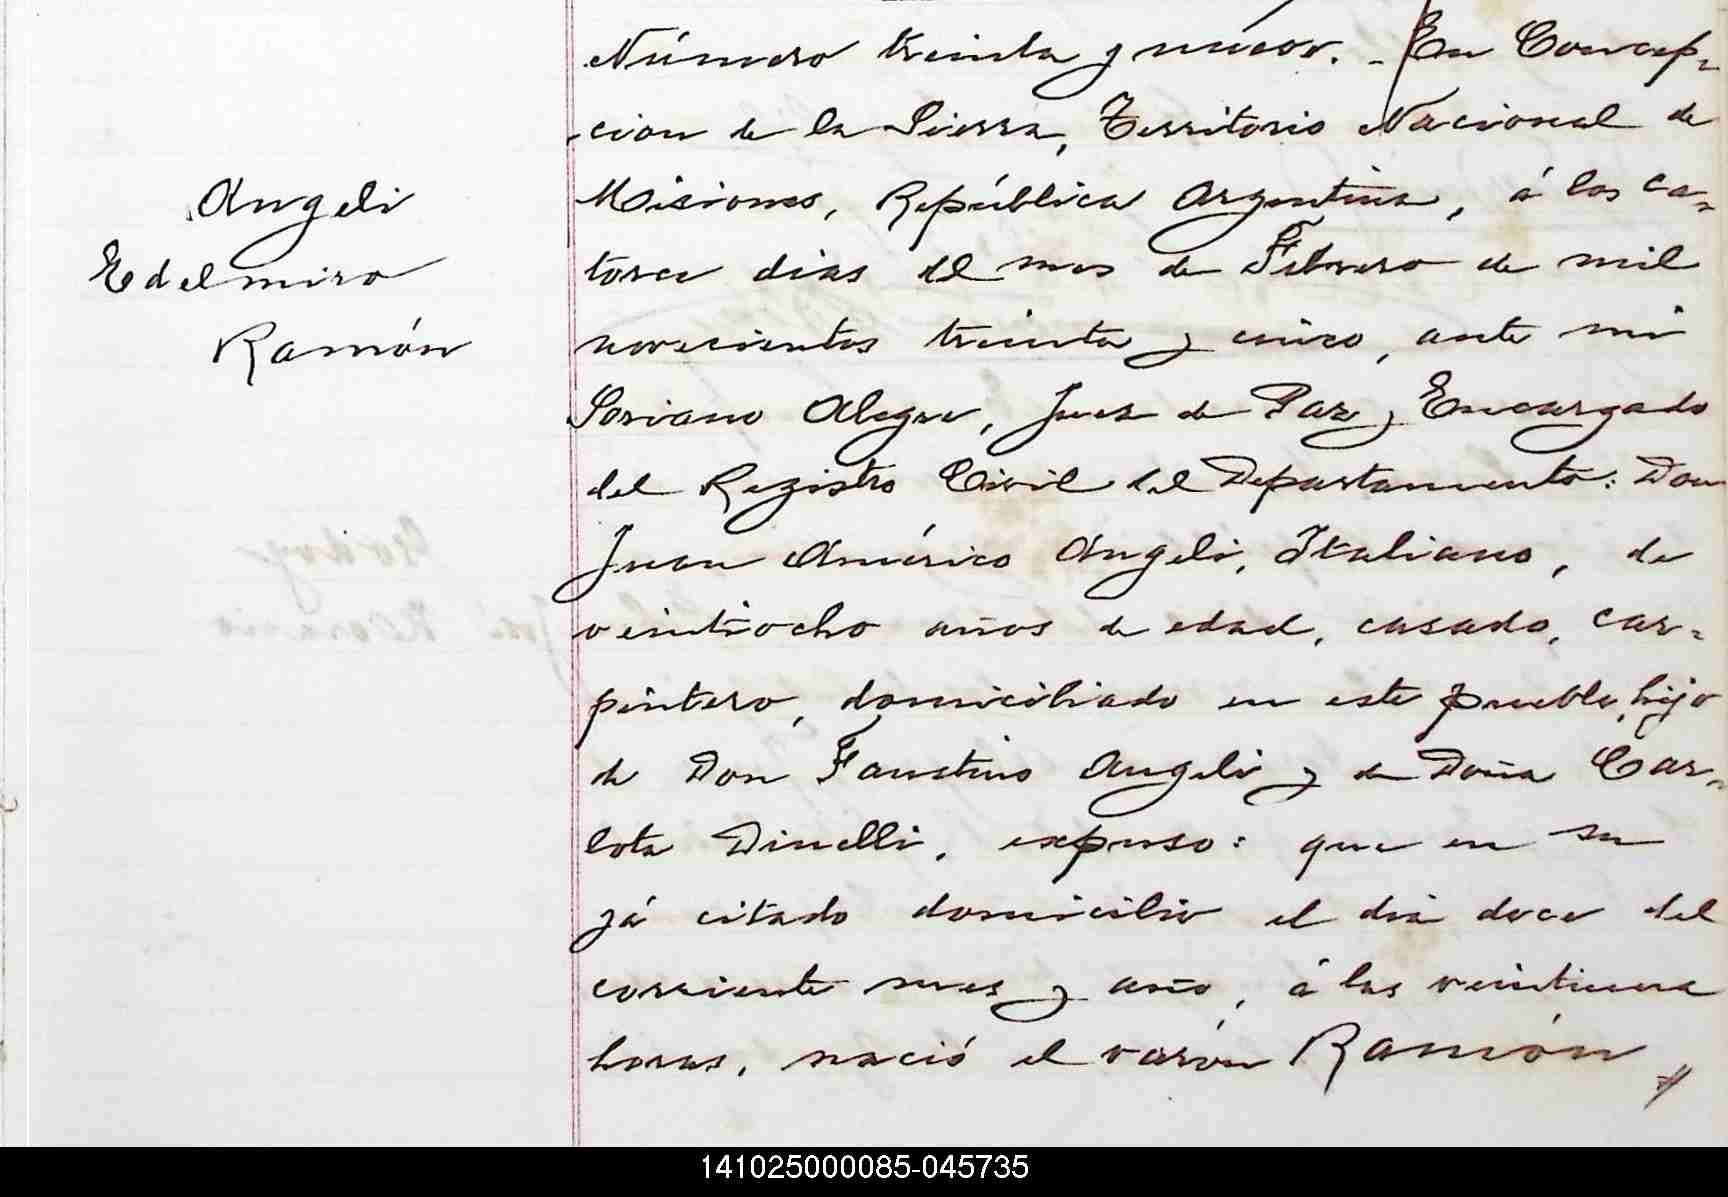 Angeli
Edelmiro
Ramón
Número treinta y nueve. - En Concep-
cion de la Sierra, Territorio Nacional de
Misiones, República Argentina, á los ca-
torce dias del mes de Febrero de mil
novecientos treinta y cinco, ante mi
Soriano Alegre, Juez de Paz y Encargado
del Registro Civil del Departamento: Don
Juan Américo Angeli, Italiano, de
veintiocho años de edad, casado, car-
pintero, domiciliado en este pueblo, hijo
de Don Faustino Angeli y de Doña Car-
lota Dinelli, expuso: que en su
já citado domicilio el dia doce del
corriente mes y año, á las veintiuna
horas, nació el varón Ramón
141025000085-045735